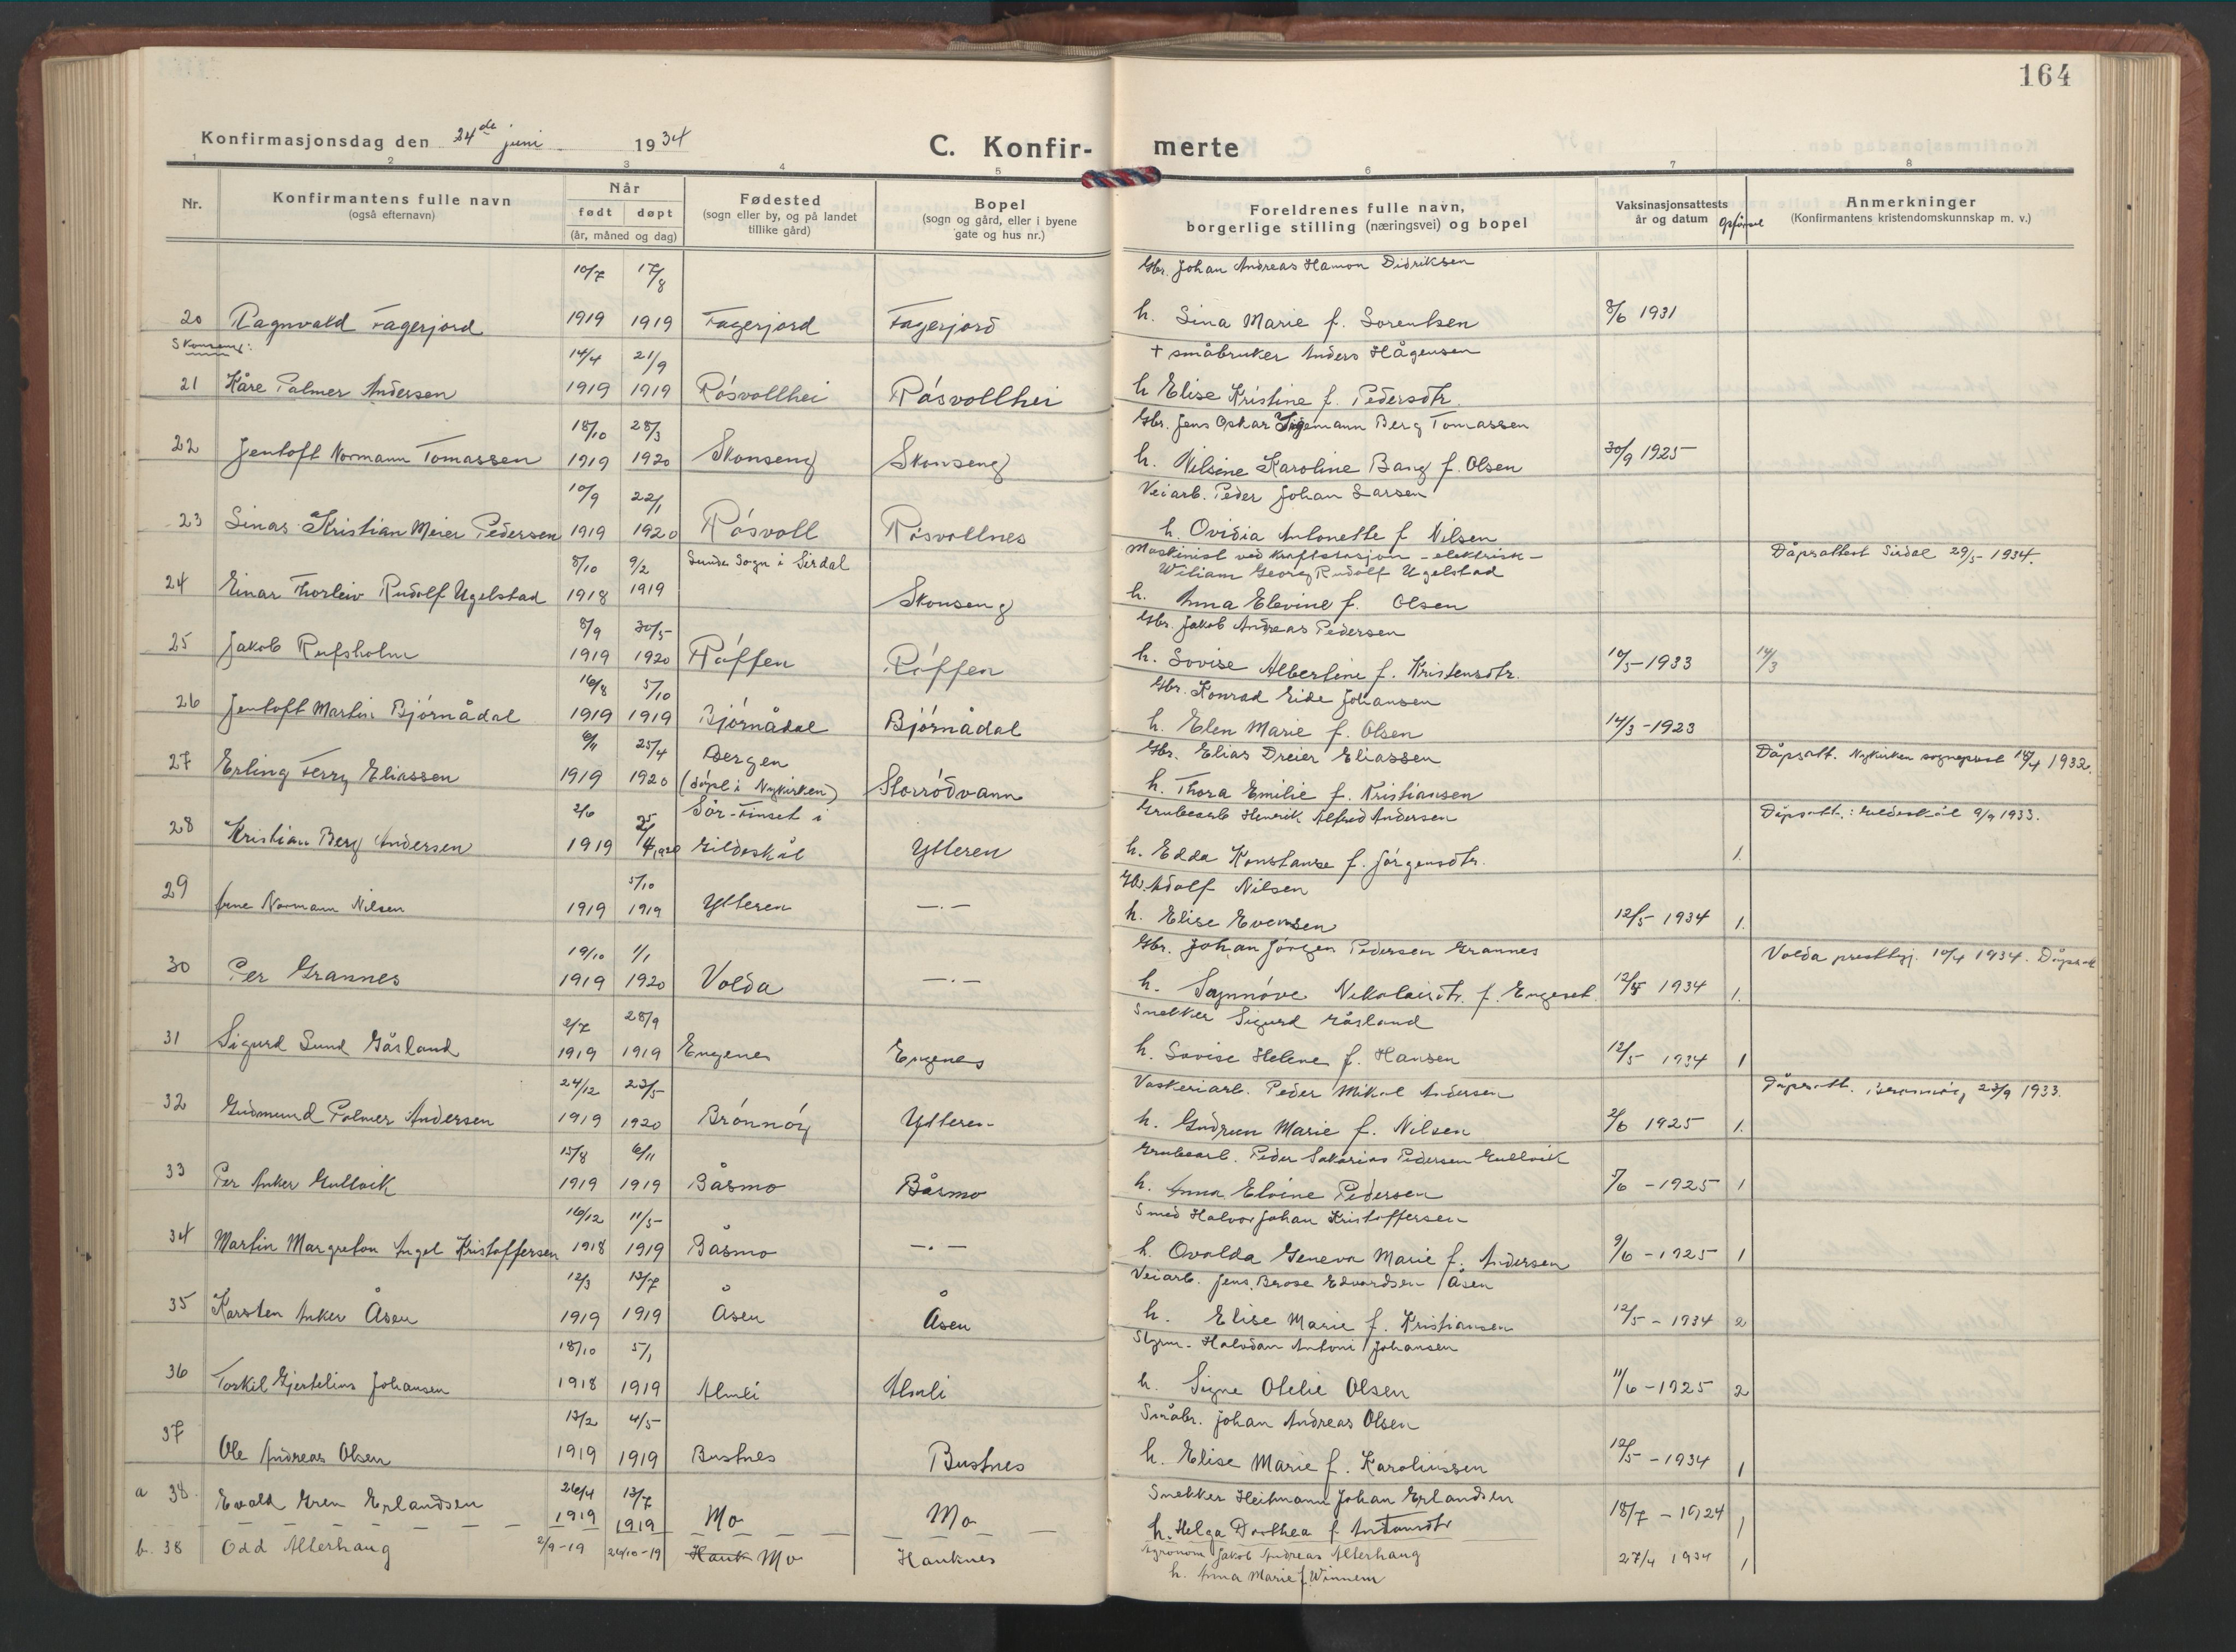 164
Konfirmasjonsdag den 24de juni 1934
C. Konfir- merte
1 2 3 4 5 6 7 8
Nr. Konfirmantens fulle navn (også efternavn) Når født døpt (år, måned og dag) Fødested (sogn eller by, og på landet tillike gård) Bopel (sogn og gård, eller i byene gate og hus nr.) Foreldrenes fulle navn, borgerlige stilling (næringsvei) og bopel Vaksinasjonsattests år og datum Opførsel Anmerkninger (Konfirmantens kristendomskunnskap m. v.)
10/7 17/8 Gbr. Johan Andreas Hamon Didriksen
20 Ragnvald Fagerjord 1919 1919 Fagerjord Fagerjord h. Sina Marie f. Sorentsen 8/6 1931
Skonseng:
14/4 21/9 + småbruker Anders Hågensen
21 Kåre Palmer Andersen 1919 1919 Røsvollhei Røsvollhei h Elise Kristine f. Pedersdtr.
18/10 28/3 Gbr. Jens Oskar Berg Tomassen
22 Jentoft Normann Tomassen 1919 1920 Skonseng Skonseng h. Nilsine Karoline Bang f. Olsen 30/9 1925
10/9 22/1 Veiarb. Peder Johan Larsen
23 Linas Kristian Meier Pedersen 1919 1920 Røsvoll Røsvollnes h. Ovidia Antonette f Nilsen
8/10 9/2 Lunde Sogn i Sirdal Maskinist ved kraftstasjon - elektrisk - Wiliam Georg Rudolf Ugelstad Dåpsattest Sirdal 29/5-1934.
24 Einar Thorleiv Rudolf Ugelstad 1918 1919 Skonseng h. Anna Elevine f. Olsen
8/9 30/5 Gbr. Jakob Andreas Pedersen
25 Jakob Rufsholm 1919 1920 Røffen Røffen h. Lovise Albertine f. Kristensdtr. 10/5-1933 14/3
16/8 5/10 Gbr. Konrad Eide Johansen
26 Jentoft Martin Bjørnådal 1919 1919 Bjørnådal Bjørnådal h. Elen Marie f. Olsen 14/3-1923
6/11 25/4 Bergen Gbr. Elias Dreier Eliassen Dåpsatt. Nykirken sogneprest 1932.
27 Erling Ferry Eliassen 1919 1920 (døpt i Nykirken) Storrødvann h. Thora Emilie f. Kristiansen
2/6 25/4 Sør-Finset i Grubearb Henrik Alfred Andersen Dåpsatt.: Gildeskål 9/9 1933.
28 Kristian Berg Andersen 1919 1920 Gildeskål Ytteren h. Edda Konstanse f. Jørgensdtr. 1.
5/10 Gbr. Adolf Nilsen
29 Arne Normann Nilsen 1919 1919 Ytteren —.— h. Elise Evensen 12/5-1934 1.
19/10 1/1 Gbr. Johan Jørgen Pedersen Grannes Volda prestegj. 10/4 1934. Dåpsatt
30 Per Grannes 1919 1920 Volda —.— h. Synnøve Nikolaisdtr. f. Engeset. 12/5 1934 1.
2/7 28/9 Snekker Sigurd Gåsland
31 Sigurd Lund Gåsland 1919 1919 Engenes Engenes h. Lovise Helene f. Hansen 12/5 1934 1
24/12 23/5 Vaskeriarb. Peder Mikal Andersen Dåpsatt. Brønnøy 23/9 1933.
32 Gudmund Palmer Andersen 1919 1920 Brønnøy Ytteren h. Gudrun Marie f. Nilsen 2/6 1925 1.
15/8 6/11 Grubearb. Peder Sakarias Pedersen Gullvik
33 Per Anker Gullvik 1919 1919 Båsmo Båsmo h. Anna Elvine Pedersen 5/6 -1925 1
16/12 11/5 Smed Halvor Johan Kristoffersen
34 Martin Margreton Angel Kristoffersen 1918 1919 Båsmo —.— h. Ovalda Geneva Marie f. Andersen 9/6-1925 1
12/3 13/7 Veiarb. Jens Brose Edvardsen Åsen
35 Karsten Anker Åsen 1919 1919 Åsen Åsen h. Elise Marie f. Kristiansen 12/5-1934 2
18/10 5/1 Styrm. Halvdan Antoni Johansen
36 Torkil Gjertelius Johansen 1918 1919 Almli Almli h. Signe Otelie Olsen 11/6-1925 2
13/2 4/5 Småbr. Johan Andreas Olsen
37 Ole Andreas Olsen 1919 1919 Bustnes Bustnes h. Elise Marie f. Karoliussen 12/5-1934 1
26/4 13/7 Snekker Heitmann Johan Erlandsen
a 38. Evald Gren Erlandsen 1919 1919 Mo Mo h. Helga Dorthea f. Antonsdtr 18/7-1924 1
b. 38 Odd Alterhaug 2/9-19 26/10-19 Hauk Mo Hauknes Agronom Jakob Andreas Alterhaug 27/4 1934 1
h. Anna Marie f. Winnem